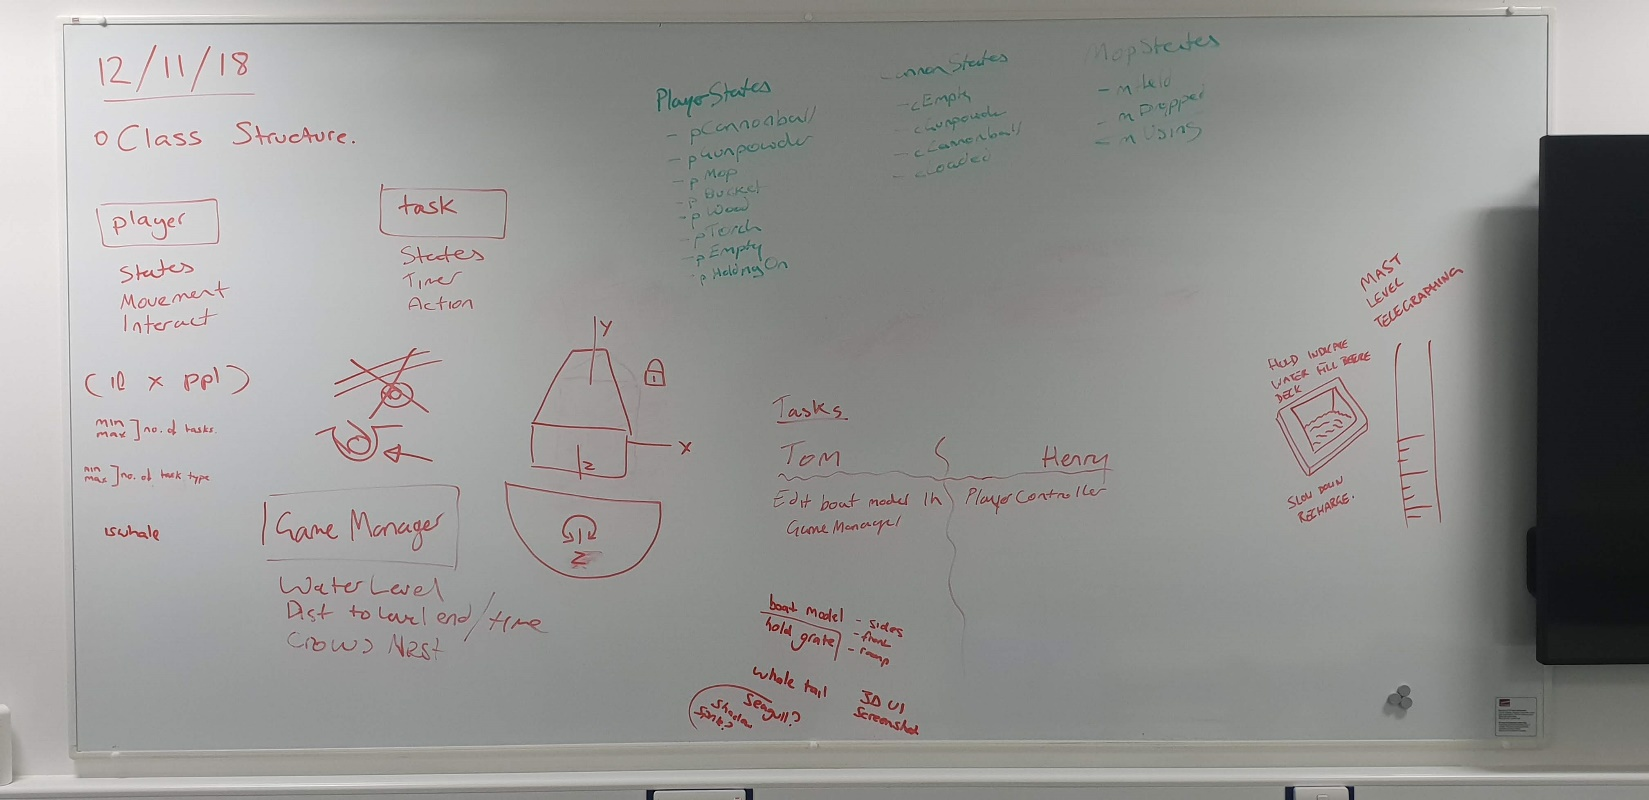 12/11/18
o Class Structure.
player
States
Movement
Interact
task
States
Timer
Action
(10 x ppl)
min
max ] no. of tasks.
min
max ] no. of task type
iswhale
Game Manager
Water Level
Dist to level end / time
Crows Nest
Y
X
Z
Z
PlayerStates
- pCannonball
- pGunpowder
- pMop
- pBucket
- pWood
- pTorch
- pEmpty
- pHoldingOn
CannonStates
- cEmpty
- cGunpowder
- cCannonball
- cLoaded
MopStates
- mHeld
- mDropped
- mUsing
Tasks
Tom
Henry
Edit boat model in
GameManager
PlayerController
boat model - sides
hold grate - front
- ramp
whale tail
Seagull?
Shadow
3D UI
Screenshot
MAST
LEVEL
TELEGRAPHING
HOLD INDICATE
WATER FILL BEFORE
DECK
SLOW DOWN
RECHARGE.